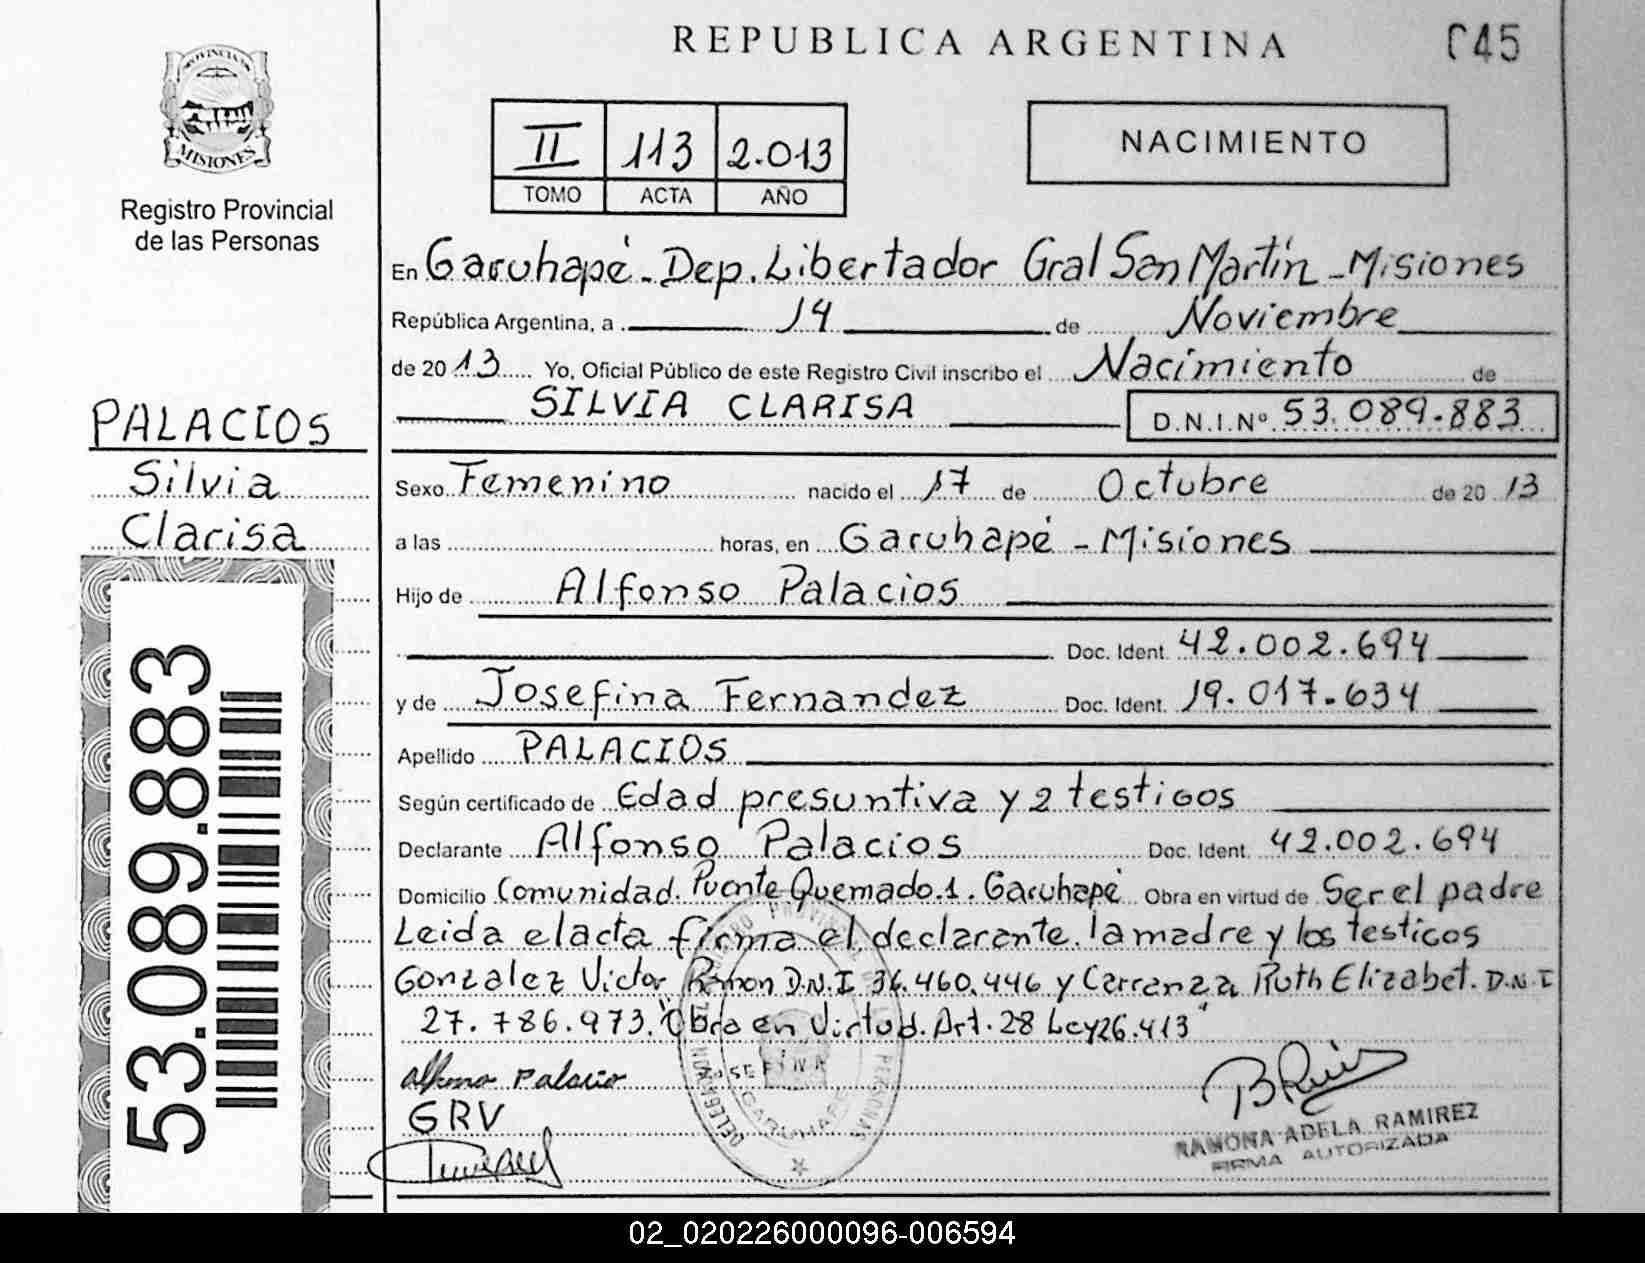 REPUBLICA ARGENTINA
045
PROVINCIA DE
MISIONES
Registro Provincial
de las Personas
II 113 2.013
TOMO ACTA AÑO
NACIMIENTO
En Garuhapé - Dep. Libertador Gral San Martín - Misiones
República Argentina, a 14 de Noviembre
de 2013 Yo, Oficial Público de este Registro Civil inscribo el Nacimiento de
SILVIA CLARISA D.N.I.Nº 53.089.883
PALACIOS
Silvia
Clarisa
53.089.883
Sexo Femenino nacido el 17 de Octubre de 2013
a las horas, en Garuhapé - Misiones
Hijo de Alfonso Palacios
Doc. Ident. 42.002.694
y de Josefina Fernandez Doc. Ident. 19.017.634
Apellido PALACIOS
Según certificado de Edad presuntiva y 2 testigos
Declarante Alfonso Palacios Doc. Ident. 42.002.694
Domicilio Comunidad. Puente Quemado.1. Garuhapé Obra en virtud de Ser el padre
Leida el acta firma el declarante. la madre y los testigos
Gonzalez Victor Ramon D.N.I 36.460.446 y Carranza Ruth Elizabet. D.N.I
27.786.973. "Obra en Virtud. Art. 28 Ley 26.413"
Alfonso Palacio
JOSEFINA
GRV
GARUHAPE
RAMONA ADELA RAMIREZ
FIRMA AUTORIZADA
02_020226000096-006594